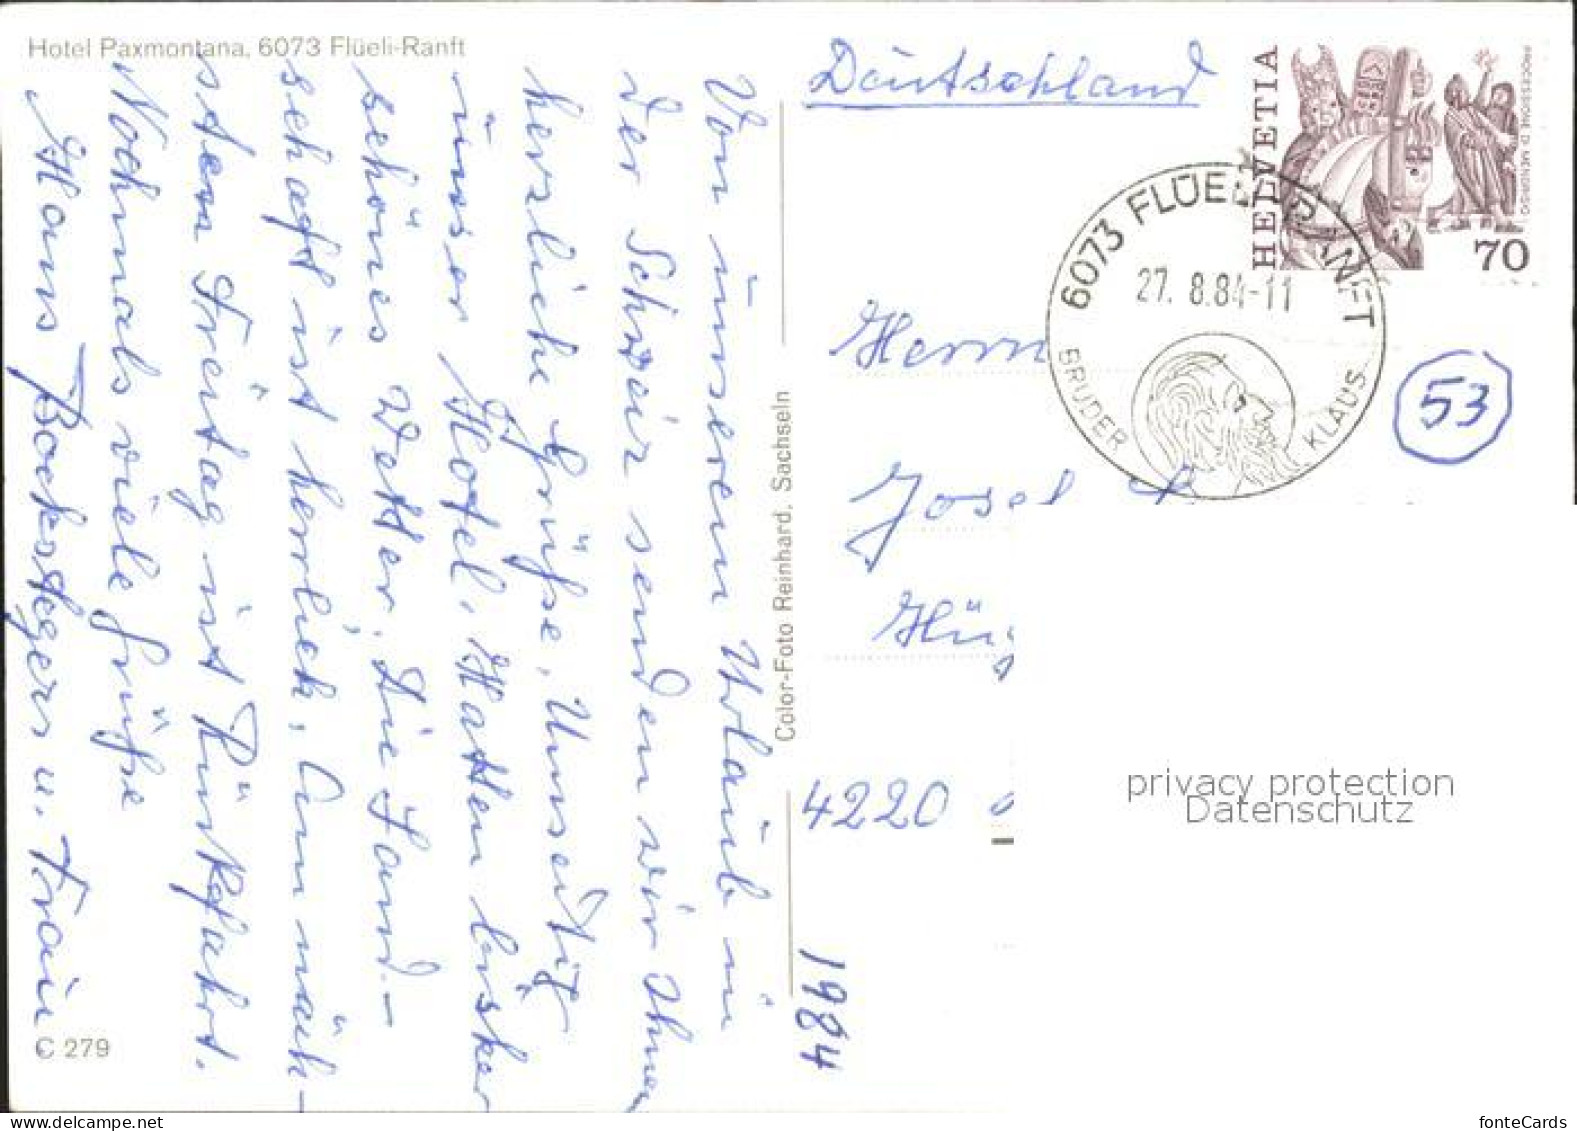 Hotel Paxmontana, 6073 Flüeli-Ranft
Von unserem Urlaub in
der Schweiz senden wir Ihnen
herzliche Grüße. Umseitig
unser Hotel. Hatten bisher
schönes Wetter. Die Land-
schaft ist herrlich. Am näch-
sten Freitag ist Rückfahrt.
Nochmals viele Grüße
Hans Bockstegers u. Frau
C 279
Color-Foto Reinhard, Sachseln
1984
Deutschland
HELVETIA
PROCESSIONE DI MENDRISIO
70
6073 FLÜELI-RANFT
27. 8.84-11
BRUDER KLAUS
53
Herrn
Josef
4220
privacy protection
Datenschutz
fonteCards